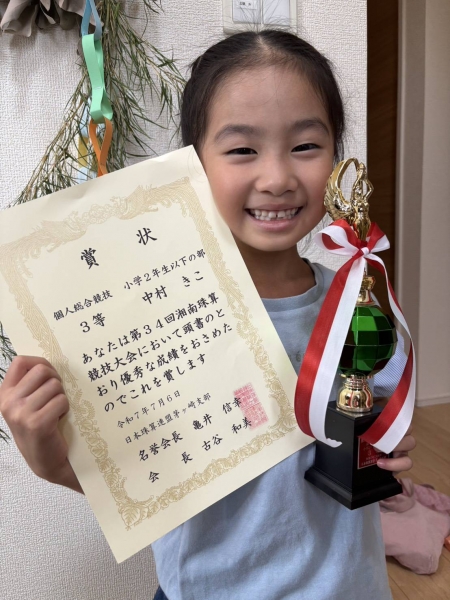 賞状
個人総合競技　小学2年生以下の部
3等　中村　きこ
あなたは第34回湘南珠算
競技大会において頭書のと
おり優秀な成績をおさめた
のでこれを賞します
令和7年7月6日
日本珠算連盟茅ヶ崎支部
名誉会長　亀井　信幸
会長　古谷　和美